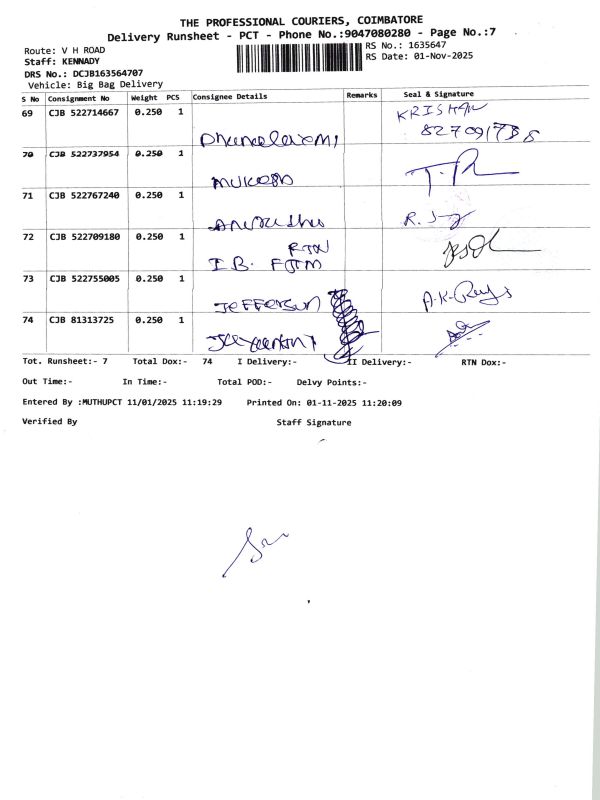 THE PROFESSIONAL COURIERS, COIMBATORE
Delivery Runsheet - PCT - Phone No.:9047080280 - Page No.:7
Route: V H ROAD
RS No.: 1635647
Staff: KENNADY
RS Date: 01-Nov-2025
DRS No.: DCJB163564707
Vehicle: Big Bag Delivery
S No Consignment No Weight PCS Consignee Details Remarks Seal & Signature
69 CJB 522714667 0.250 1 KRISHAN
70 CJB 522737954 0.250 1
MUKESH
71 CJB 522767240 0.250 1
72 CJB 522709180 0.250 1 RTN
I.B.
73 CJB 522755005 0.250 1
JEFFERSON
74 CJB 81313725 0.250 1
Tot. Runsheet:- 7 Total Dox:- 74 I Delivery:- II Delivery:- RTN Dox:-
Out Time:- In Time:- Total POD:- Delvy Points:-
Entered By :MUTHUPCT 11/01/2025 11:19:29 Printed On: 01-11-2025 11:20:09
Verified By Staff Signature